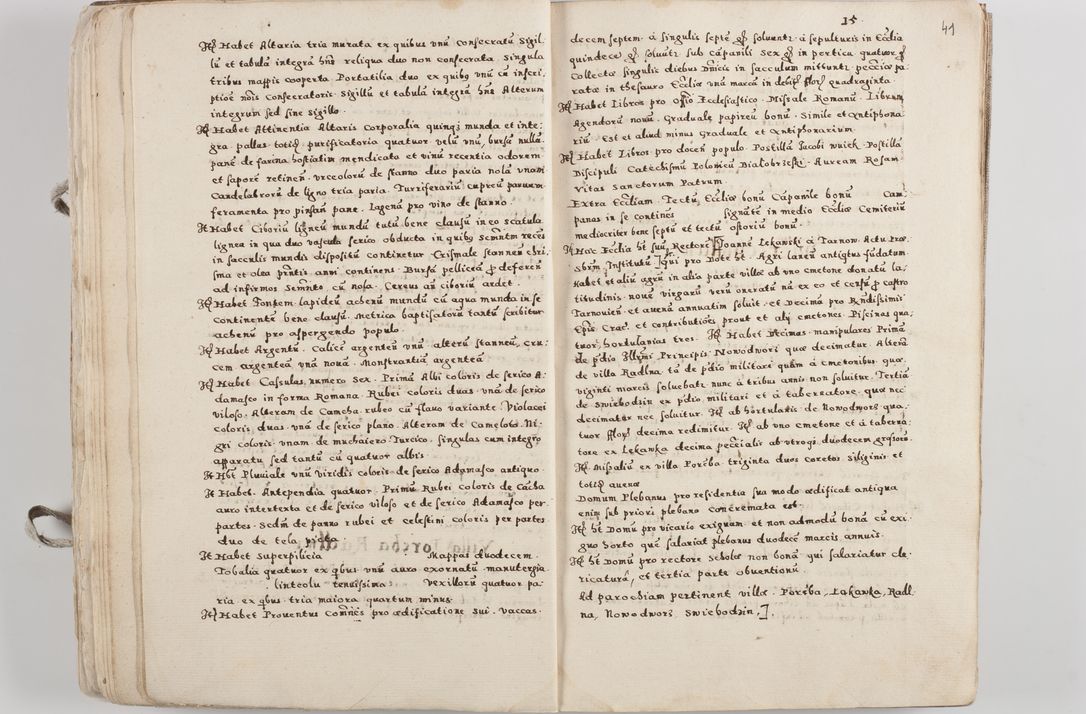 It Habet Altaria tria murata ex quibus vnũ Consecratũ Sigil-
lũ et tabulã integrã hñs reliqua duo non consecrata. Singula
tribus mappis cooperta. Portatilia duo ex quibq vnũ cũ inscri,
ptiõe nõis Consecratoris. Sigillũ et tabulã integrã hñs Alterum
integrum sed sine sigillo.
It Habet Attinentia Altaris Corporalia quinq munda et inte:
gra pallas totiđ. purificatoria quatuor. velũ vnũ, bursũ nullã.
panẽ de farina hostiatim mendicato et vinũ recentia odorem
et saporẽ retineñ. vrceolorũ de stanno duo paria nolã vnam
Candelabrorũ de ligno tria paria. Turriferariũ cupreũ paruum
feramenta pro pinsañ pane. Lagenã pro vino de stanno.
It Habet Ciboriũ ligneũ mundũ tutũ bene clausũ in eo scatula
lignea in qua duo vascula serico obducta in quibq Scmñtm recẽs
in sacculis mundis dispositũ continetur. Crismale stanneũ chri,
sma et olea prñtis anni continens. Bursã pelliceã ꝓ deferen
ad infirmos Semñto cũ nola. Cereus añ ciboriũ ardet.
It Habet Fontem lapideũ achenũ mundũ cũ aqua munda in se
Continentẽ bene clausũ. Metrica baptisatorũ tantũ scribitur
achenũ pro aspergendo populo.
It Habet Argentũ. Calicẽ argenteũ vnũ alterũ stanneũ, cru:
cem argenteã vnã nouã. Monstrantiã argenteã
It Habet Casulas numero Sex. Primã Albi coloris de serico A:
damasco in forma Romana. Rubei coloris duas. vnã de serico
viloso. Alteram de Camcha rubeo cũ flauo variante. Violacei
coloris duas vnã de serico plano. Alteram de Camelotø. Ni-
gri coloris vnam de muchaiero Turcico. singulas cum integro
apparatu sed tantũ cũ quatuor albis
It Hbt Pluuiale vnũ viridis coloris de serico Adamasco antiquo
It Habet. Antependia quatuor. Primũ Rubei coloris de Cãcha
auro intertexta et de serico viloso et de serico Adamasco per
partes. Scdm̃ de panno rubei et celestini coloris per partes
duo de tela picta.
It Habet Superpilicia Mappas duodecem
Tobalia quatuor ex qbus vnũ auro exornatũ manutergia
linteolu tenuissima Vexillorũ quatuor pa-
ria ex qbus tria maiora quartum minus
It Habet Prouentus Comñes pro ædificatione sui vaccas

15
41
decem septem à singulis septẽ gſ soluuntr à sepulturis in Ecclia
quindece gſ soluũtr sub cãpanili Sex gſ in pertica quatuor gſ
Collecta singulis diebus Dñicis in sacculum mittuntr pecciæ pa-
ratæ in thesauro Ecclie vnã marcã in debitſ flor quadraginta
It Habet Libros pro Offio Ecclesiastico. Missale Romanũ. Librum
Agendorũ nouũ. Graduale papireũ bonũ. Simile et Antiphona
riũ. Est et aliud minus Graduale et Antiphonarium
It Habet Libros pro doceñ populo. Postillã Jacobi wuiek. Postillã
Discipuli Catechismũ Polonicũ Białobrzeski. Auream Rosam
Vitas Sanctorum Patrum
Extra Eccliam. Tectũ Ecclie bonũ Cãpanile bonũ Cam-
panas in se continẽs signũte in medio Eccliæ Cemiteriũ
mediocriter bene septũ et tectũ ostoriũ bonũ.
It Hæc Ecclia ht suũ Rectorẽ Joannẽ Lekawski à Tarnow. Actu Præ-
sbrm̃ Institutũ] Qui pro Dote ht. Agri laneũ antiqtus fũdatum
Habet et aliũ agrũ in alia parte villæ ab vno cmetone donatũ la-
titudinis nouẽ virgarũ verũ oneratũ nã ex eo et censũ ꝓ castro
Tarnouieñ et auenã annuatim soluit. et Decimã pro Rñdissimũ
Epũ Crac. et contributiões prout et alij cmetones Piscinas qua:
tuor, hortulanias tres. It Habet Decimas manipulares Primã
de pdio Illĩmi Principis Nowodwori quæ decimatur. Alterã
de villa Radlna tã de pdio militari quàm à cmetonibus quæ
viginti marcis soluebatr nunc à tribus annis non soluitur. Tertiã
de Swiebodzin ex pdio militari et à tabernatore quæ nec
decimatur nec soluitur. It ab hortulanis de Nowodworz qua:
tuor flor decima redimitur. It ab vno cmetone et à taberna:
tore ex Lekawka decima pecialis ab vtroq duodecem grosoru
It Missaliũ ex villa Porẽba triginta duos coretos siliginis et
totiđ auenæ
Domum Plebanus pro residentia sua modo ædificat antiqua
enim sub priori plebano concremata est
It ht Domũ pro vicario exiguam et non admodũ bonã cũ exi-
guo horto quẽ salariat plebanus duodecẽ marcis annuis
It ht Domũ pro rectore scholæ non bonã qui salariatur cle-
ricaturã, et tertia parte obuentionũ
Ad parochiam pertinent villæ. Porẽba, Lekawka, Radl-
na, Nowodworz. Swiebodzin.]